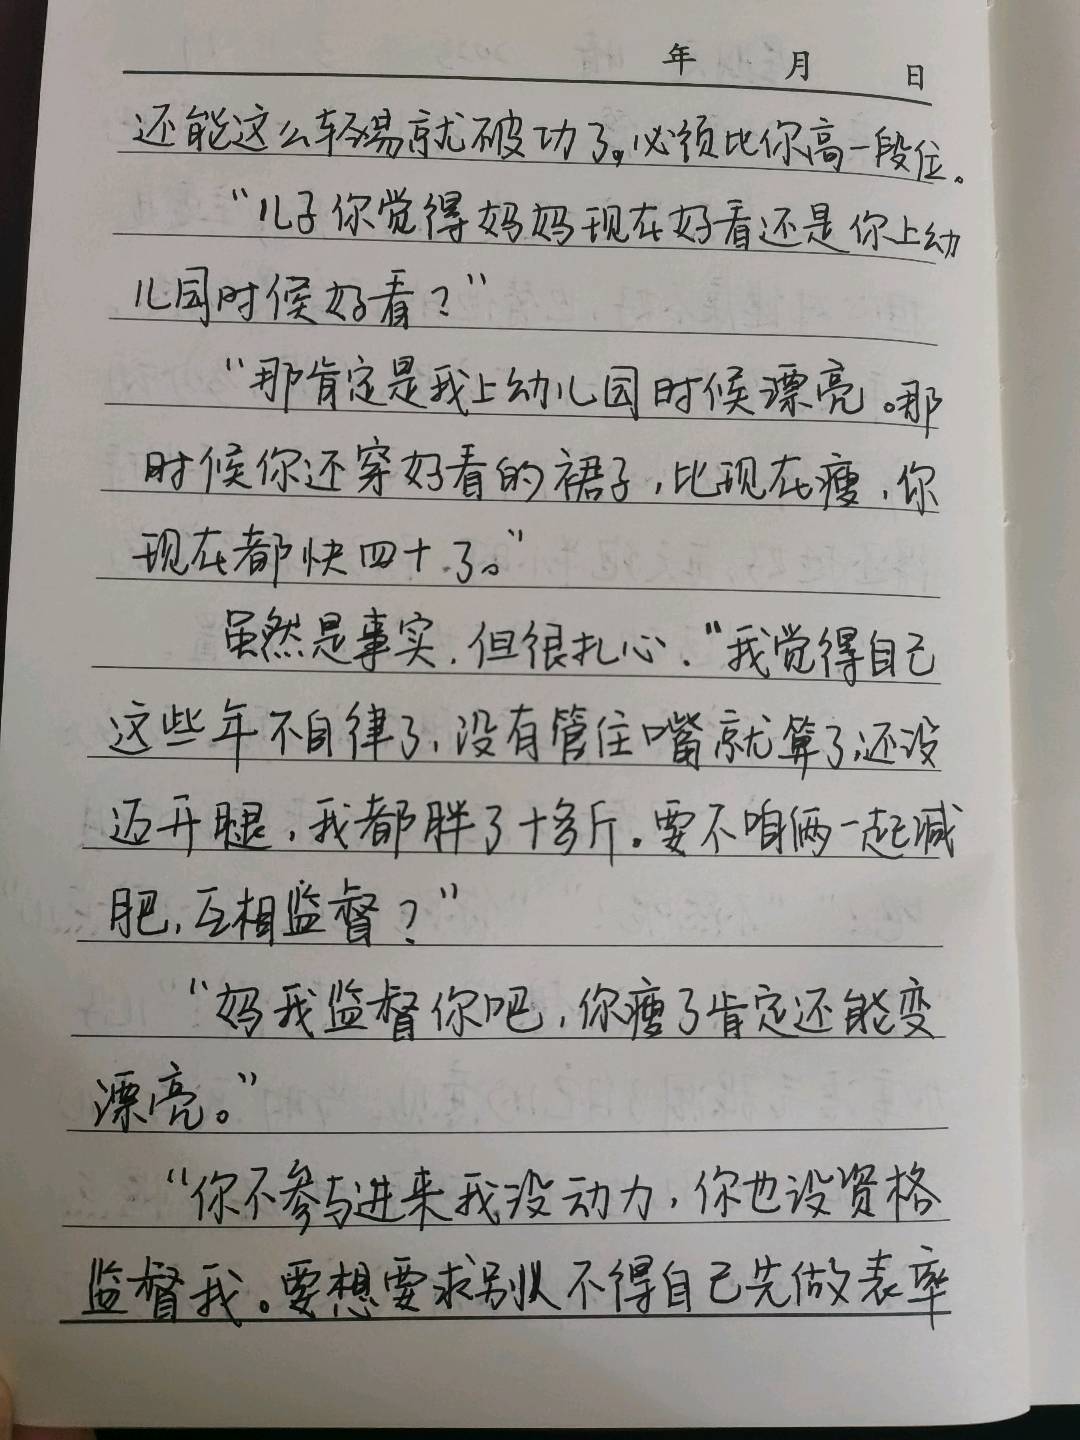 年 月 日
还能这么轻易就破功了。必须比你高一段位。
“儿子你觉得妈妈现在好看还是你上幼
儿园时候好看？”
“那肯定是我上幼儿园时候漂亮。那
时候你还穿好看的裙子，比现在瘦，你
现在都快四十了。”
虽然是事实，但很扎心。“我觉得自己
这些年不自律了，没有管住嘴就算了，还没
迈开腿，我都胖了十多斤。要不咱俩一起减
肥，互相监督？”
“妈我监督你吧，你瘦了肯定还能变
漂亮。”
“你不参与进来我没动力，你也没资格
监督我。要想要求别人不得自己先做表率